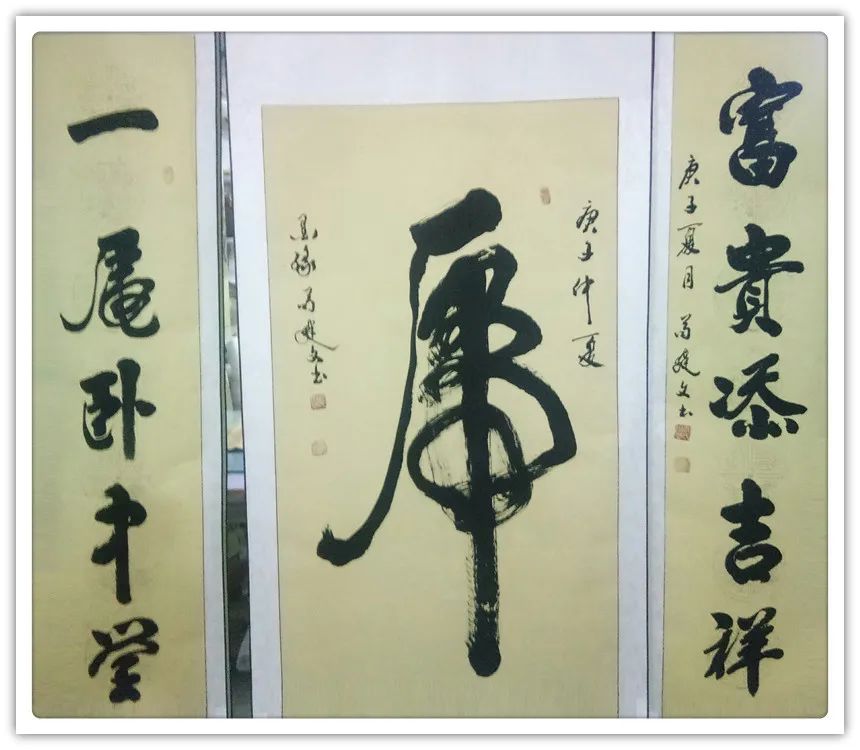 一虎卧中堂
庚子仲夏
虎
墨缘 建文书
富貴添吉祥
庚子夏月 建文书